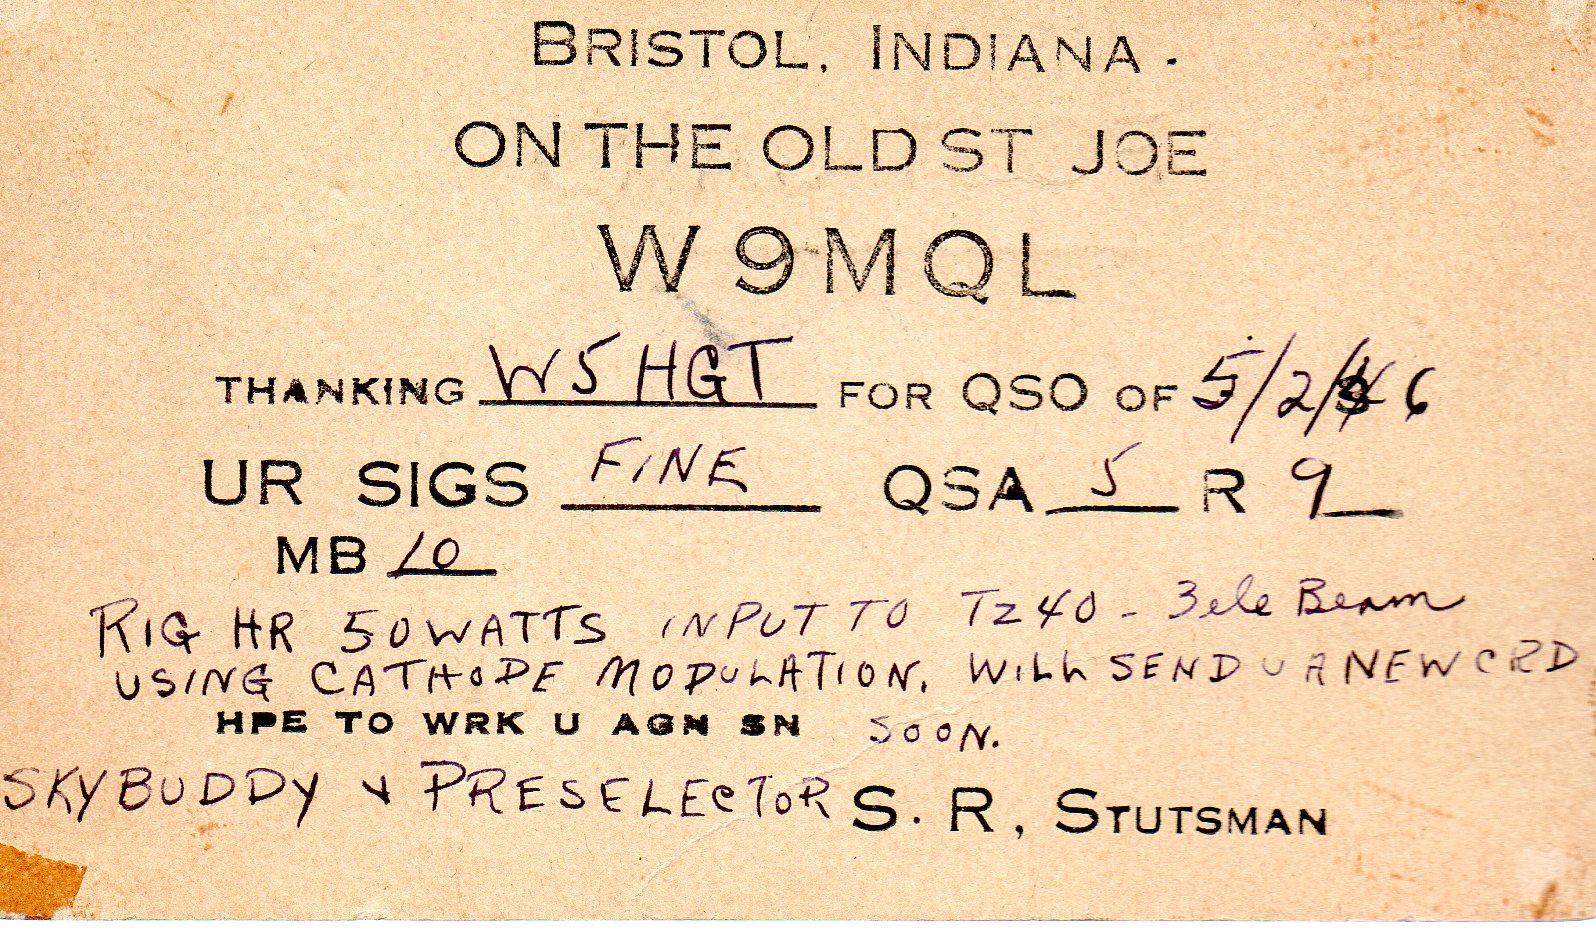 BRISTOL, INDIANA.
ON THE OLD ST JOE
W9MQL
THANKING W5HGT FOR QSO OF 5/2/46
UR SIGS FINE QSA 5 R 9
MB 10
RIG HR 50 WATTS INPUT TO TZ40 - 3 ele Beam
USING CATHODE MODULATION. WILL SEND U A NEW CRD
HPE TO WRK U AGN SN SOON.
SKYBUDDY & PRESELECTOR S. R, STUTSMAN